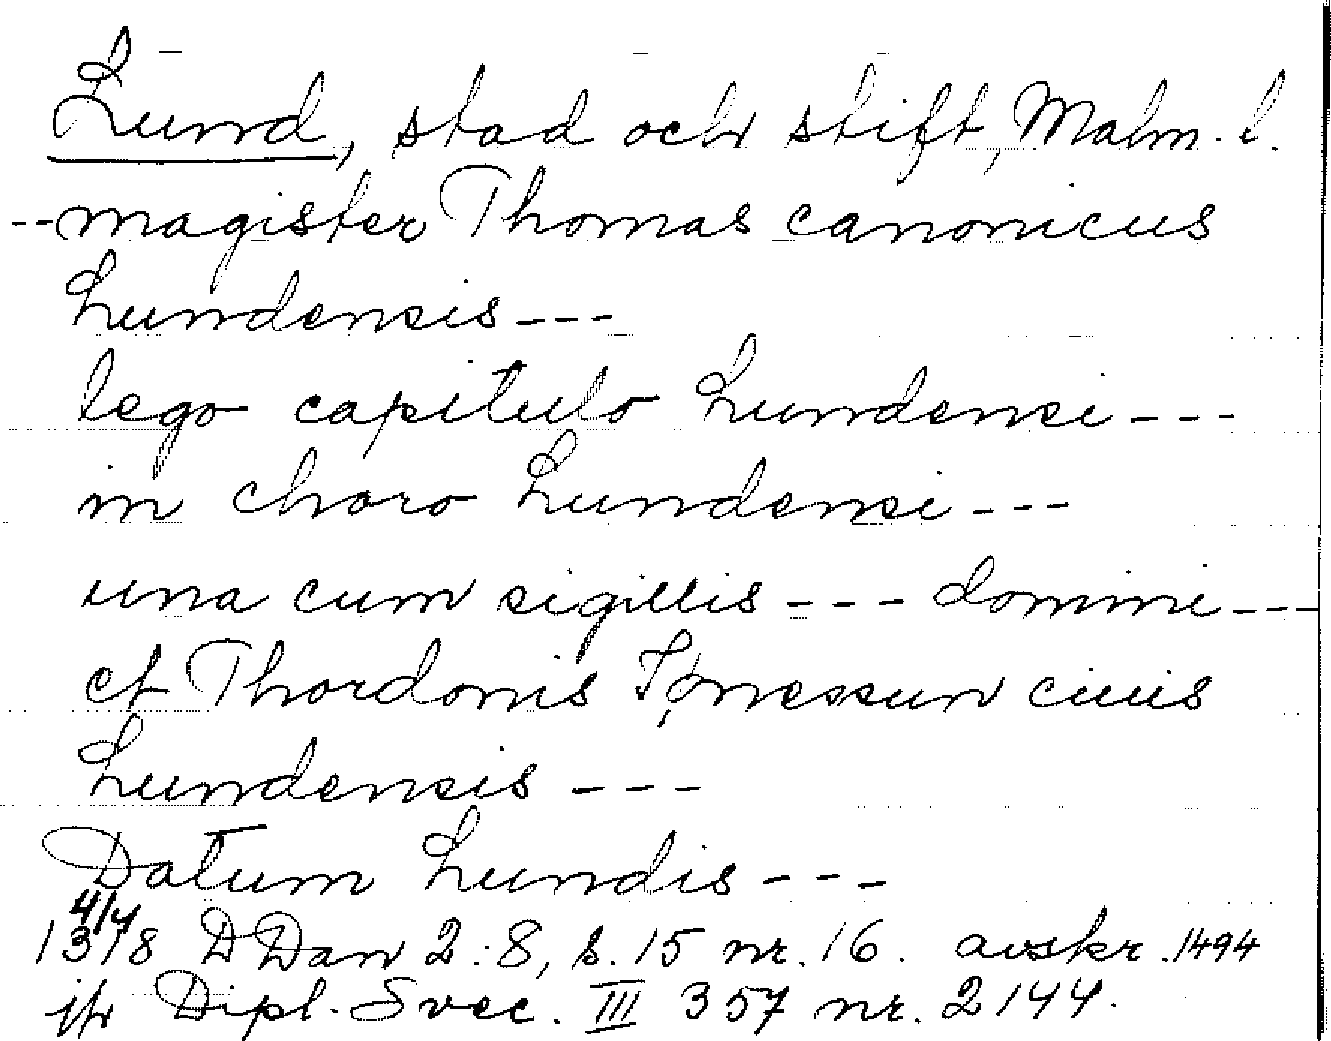 Lund, stad och stift, Malm. l.
--magister Thomas canonicus
Lundensis---
lego capitulo Lundensi---
in choro Lundensi---
una cum sigillis --- domini---
et Thordonis Iønessun ciuis
Lundensis ---
Datum Lundis---
4/4
1318 DDan 2:8, s.15 nr.16. avskr.1494
jfr Dipl. Svec. III 357 nr. 2144.